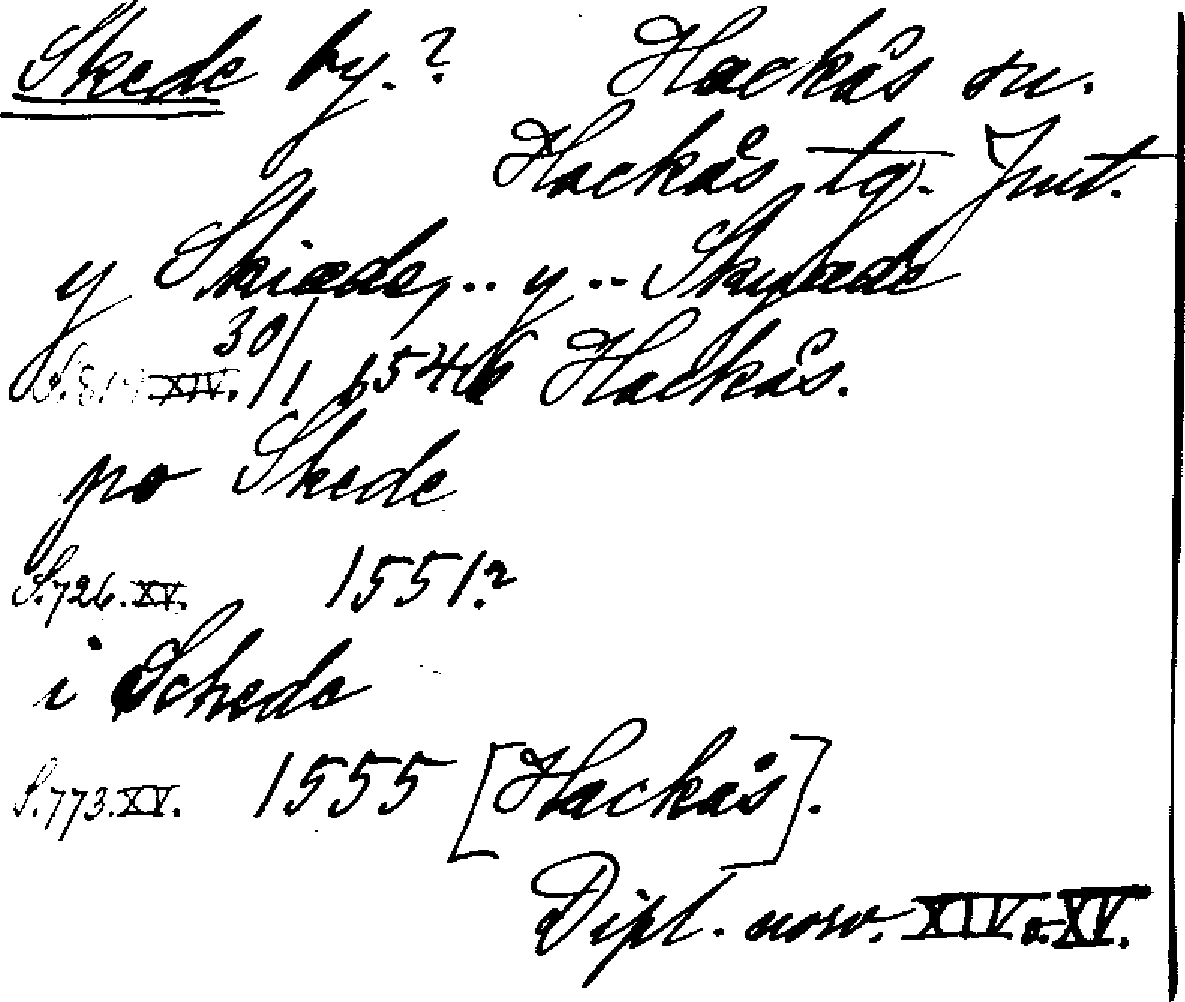 Skede by.? Hackås sn.
Hackås tg. Jmt.
y Skiæde, .. y .. Skyæde
30/1 1546 Hackås.
XIV.
po Skede
S.726.XV. 1551?
i Schede
S.773.XV. 1555 [Hackås].
Dipl. norv. XIV. o. XV.